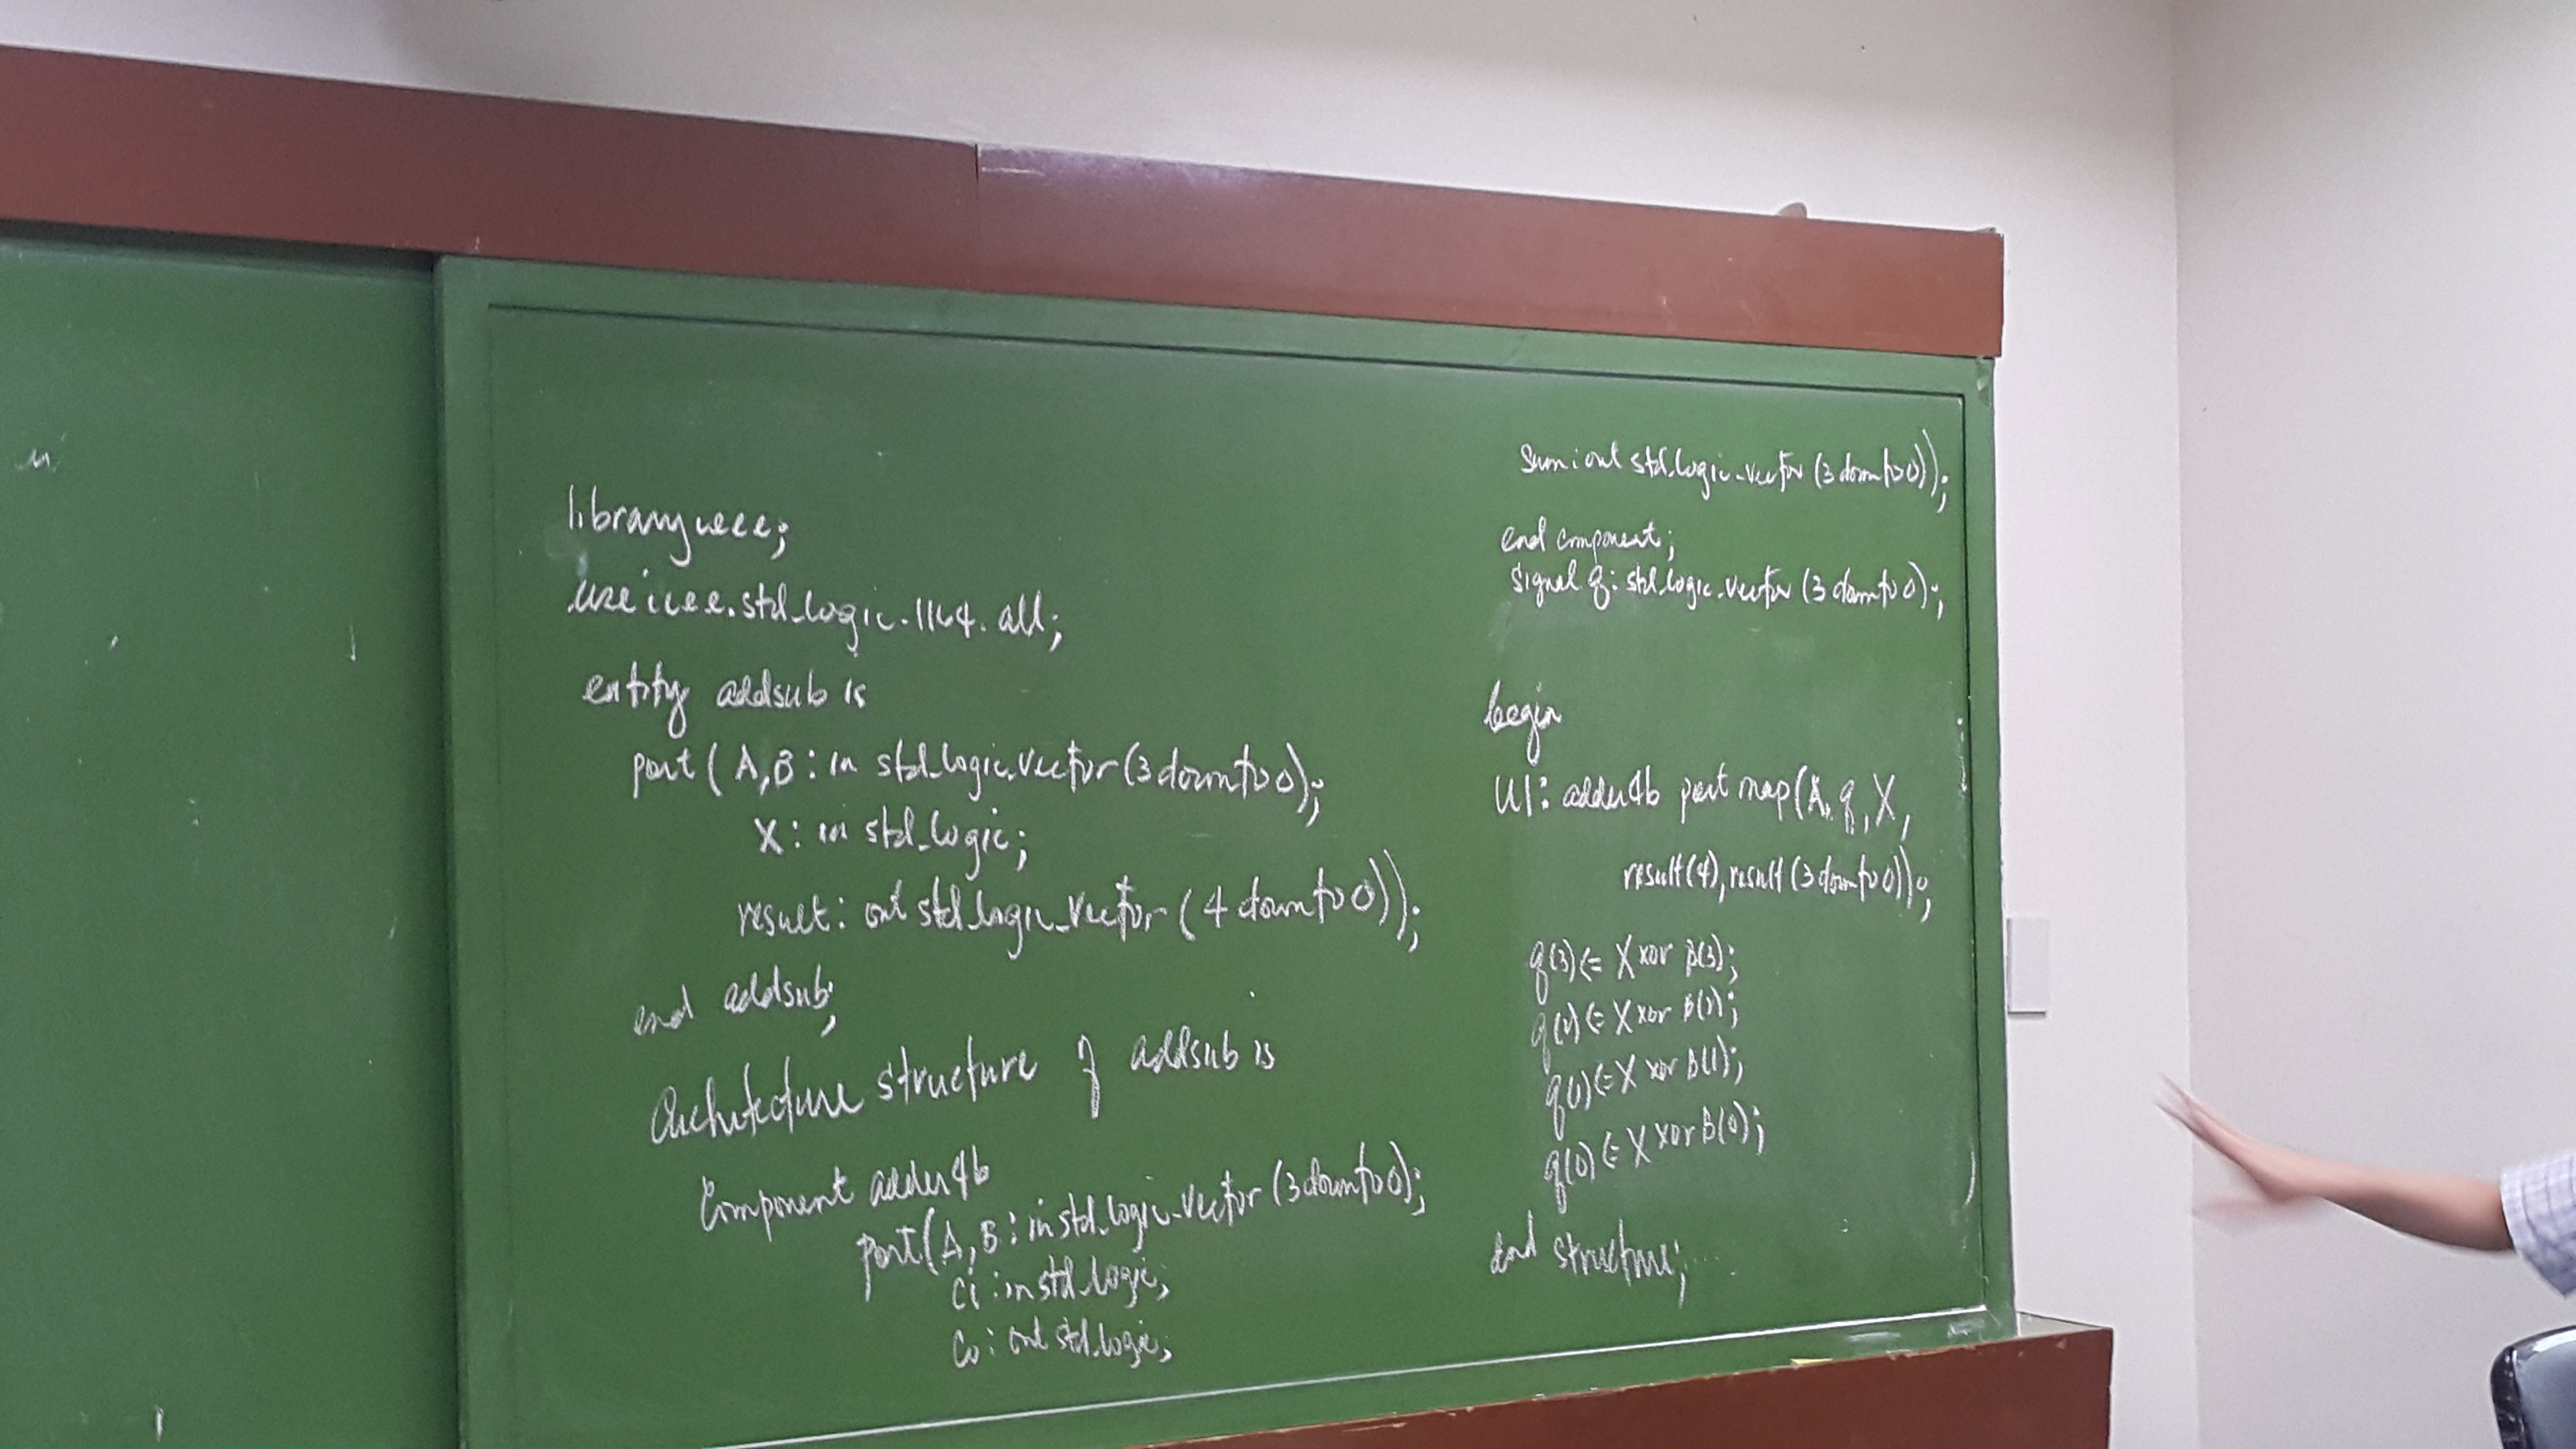 library ieee;
use ieee.std_logic.1164.all;
entity addsub is
port (A,B : in std_logic_vector (3 downto 0);
X : in std_logic;
result : out std_logic_vector (4 downto 0));
end addsub;
Architecture structure of addsub is
Component adder4b
port (A,B : in std_logic_vector (3 downto 0);
Ci : in std_logic;
Co : out std_logic;
Sum : out std_logic_vector (3 downto 0));
end component;
signal q : std_logic_vector (3 downto 0);
begin
U1: adder4b port map (A, q, X,
result(4), result (3 downto 0));
q(3) <= X xor B(3);
q(2) <= X xor B(2);
q(1) <= X xor B(1);
q(0) <= X xor B(0);
end structure;